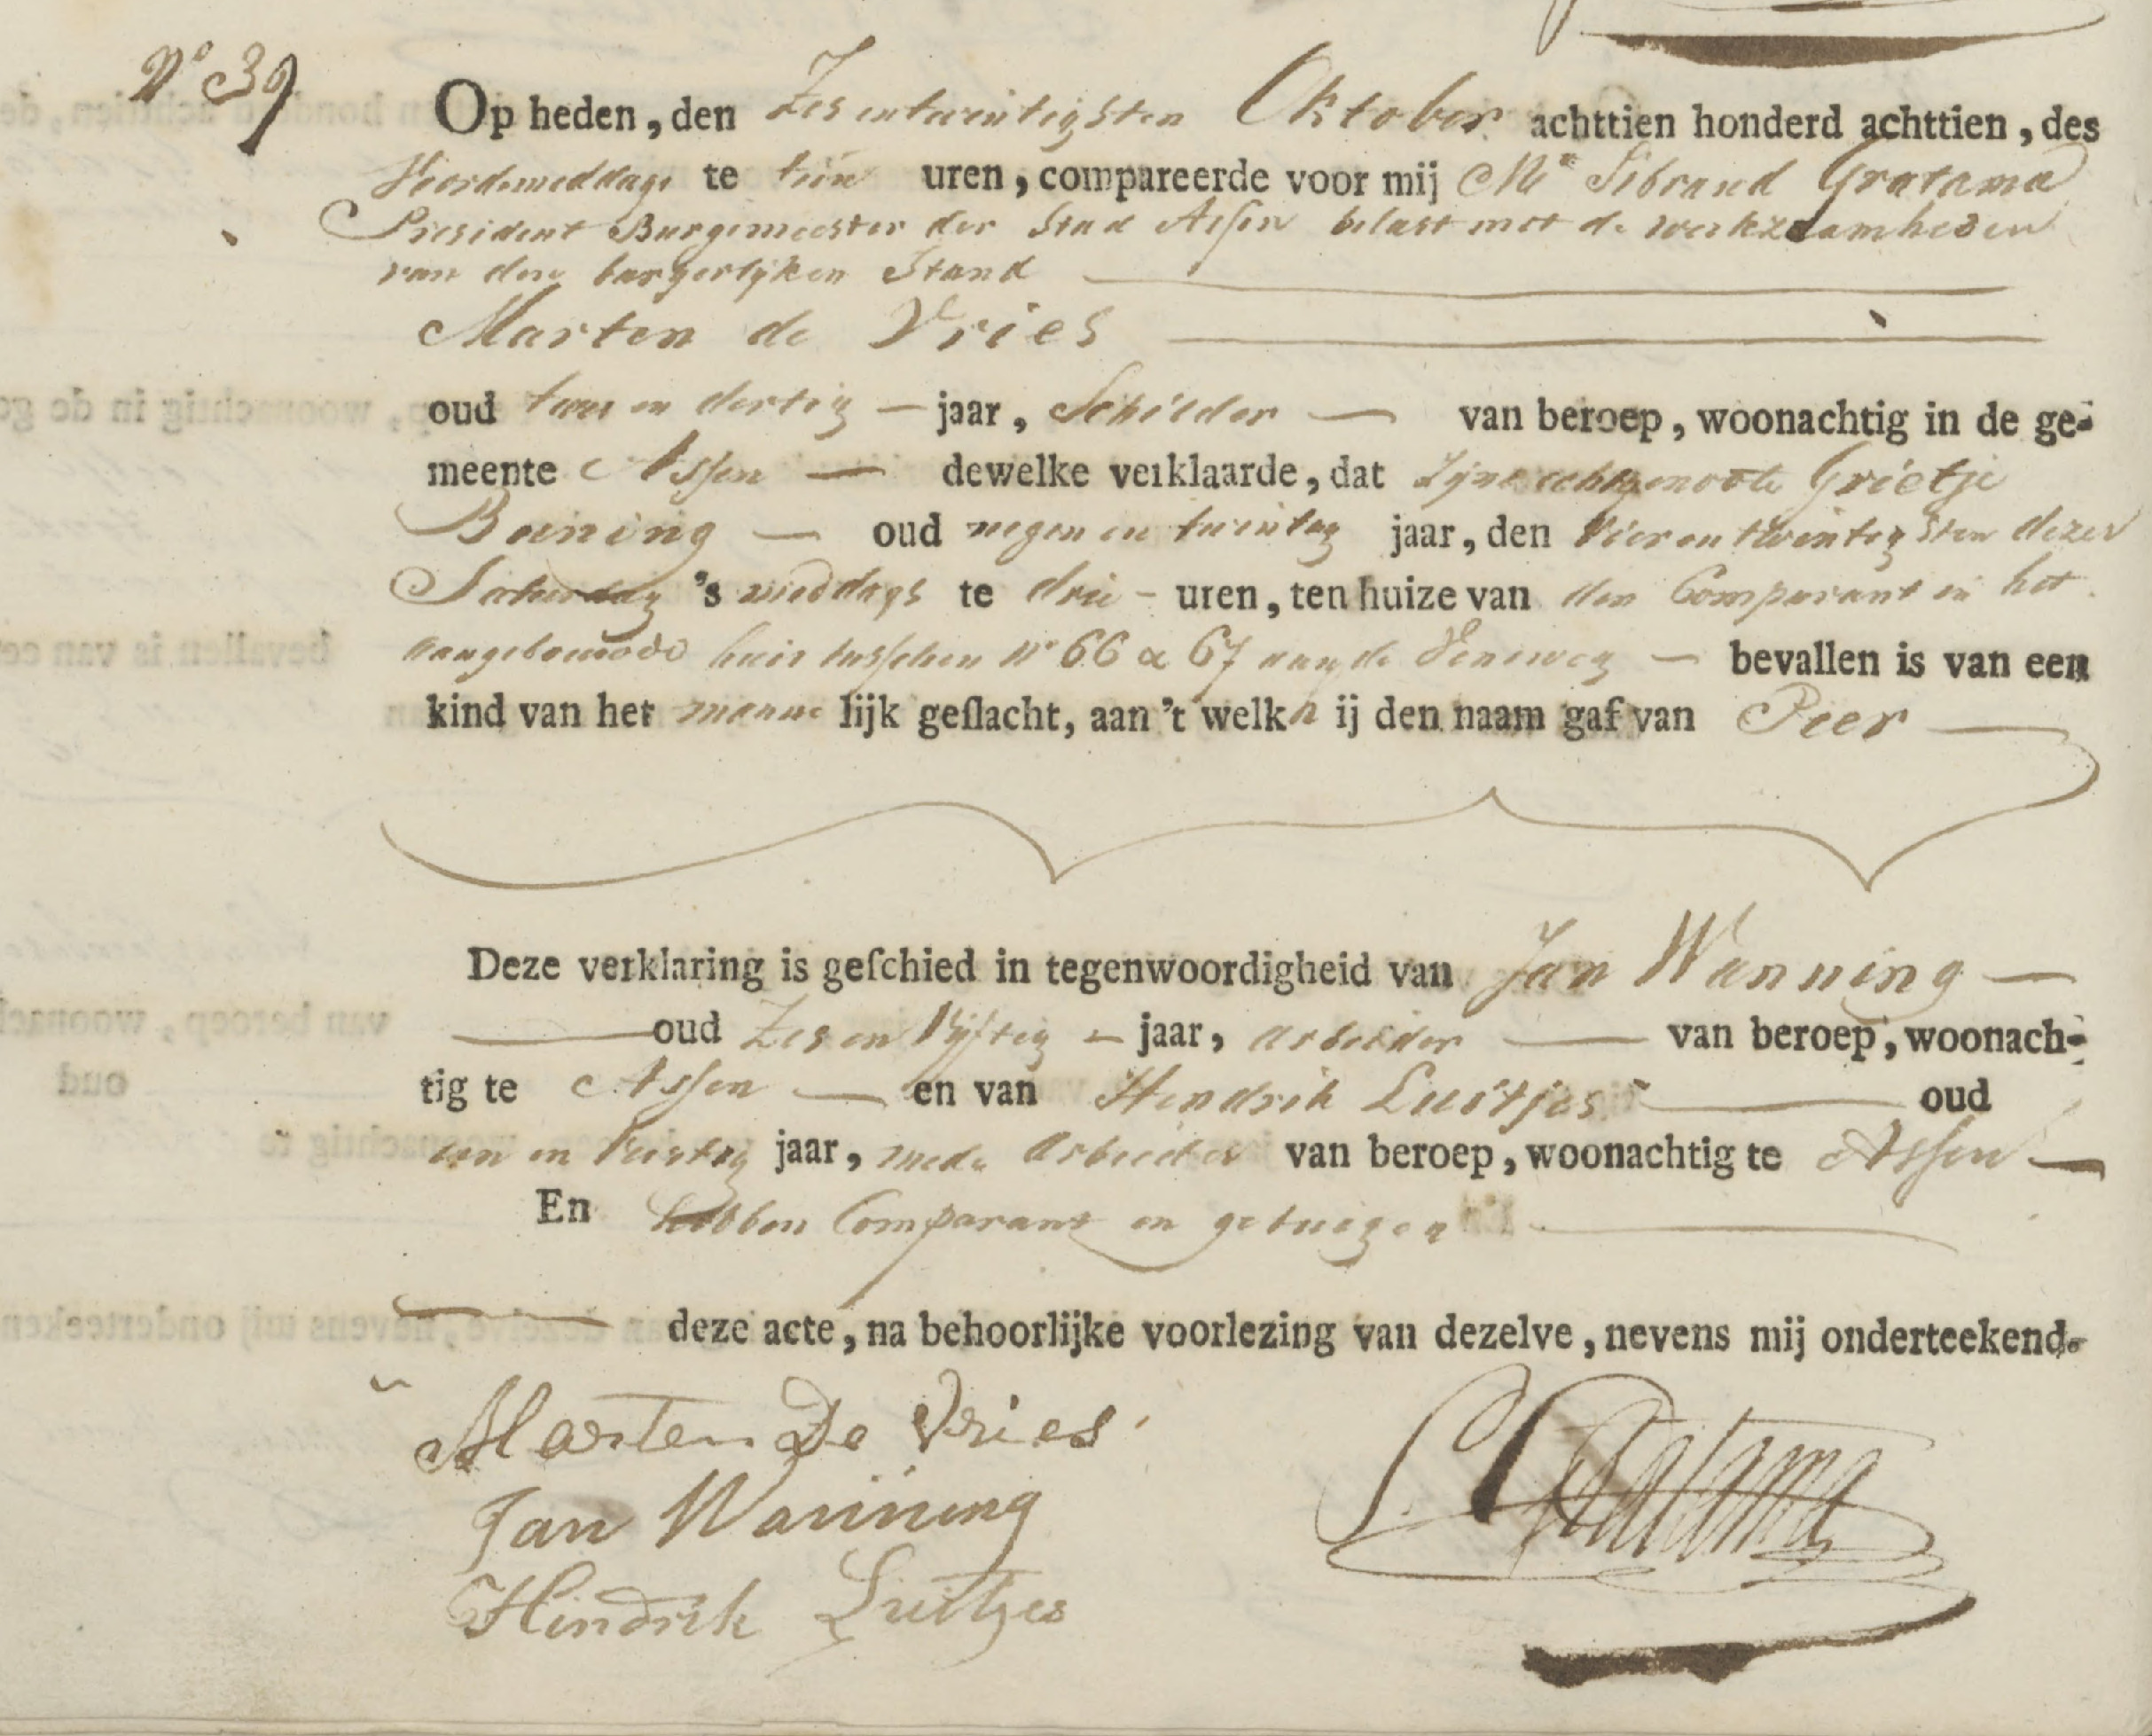 N° 39
Op heden, den Zesentwintigsten Oktober achttien honderd achttien, des
Voordemiddags te tien uren, compareerde voor mij Mr Sibrand Gratama
President Burgemeester der Stad Assen belast met de werkzaamheden
van den burgerlyken Stand
Marten de Vries
oud twee en dertig jaar, Schilder van beroep, woonachtig in de ge-
meente Assen dewelke verklaarde, dat Zijne echtgenoote Grietje
Boening oud negen en twintig jaar, den Vier en twintigsten dezer
Saturdag 's middags te drie uren, ten huize van den Comparant in het
aangebouwde huis tusschen N° 66 & 67 aan de Veneweg bevallen is van een
kind van het manne lijk geslacht, aan 't welk h ij den naam gaf van Peer
Deze verklaring is geschied in tegenwoordigheid van Jan Wanning
oud Zes en Vyftig jaar, arbeider van beroep, woonach-
tig te Assen en van Hendrik Luitjes oud
een en jaar, mede Arbeider van beroep, woonachtig te Assen
En hebben Comparant en getuigen
deze acte, na behoorlijke voorlezing van dezelve, nevens mij onderteekend.
Marten De Vries
Jan Wanning
Hindrik Luitjes
S Gratama